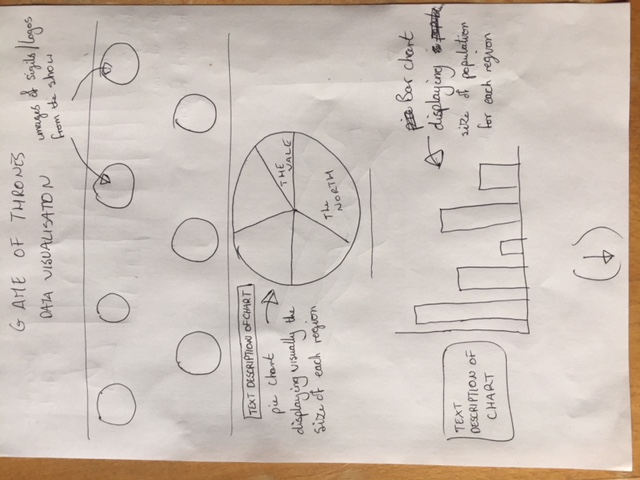 GAME OF THRONES
DATA VISUALISATION
images of sigils/logos
from the show
TEXT DESCRIPTION OF CHART
pie chart
displaying visually the
size of each region
THE
VALE
The
NORTH
TEXT
DESCRIPTION OF
CHART
pie Bar chart
displaying
size of population
for each region